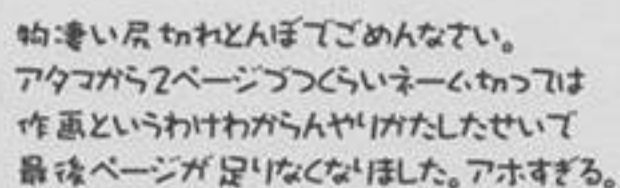 物凄い尻切れとんぼでごめんなさい。
アタマから2ページづつくらいネーム切っては
作画というわけわからんやりかたしたせいで
最後ページが足りなくなりました。アホすぎる。